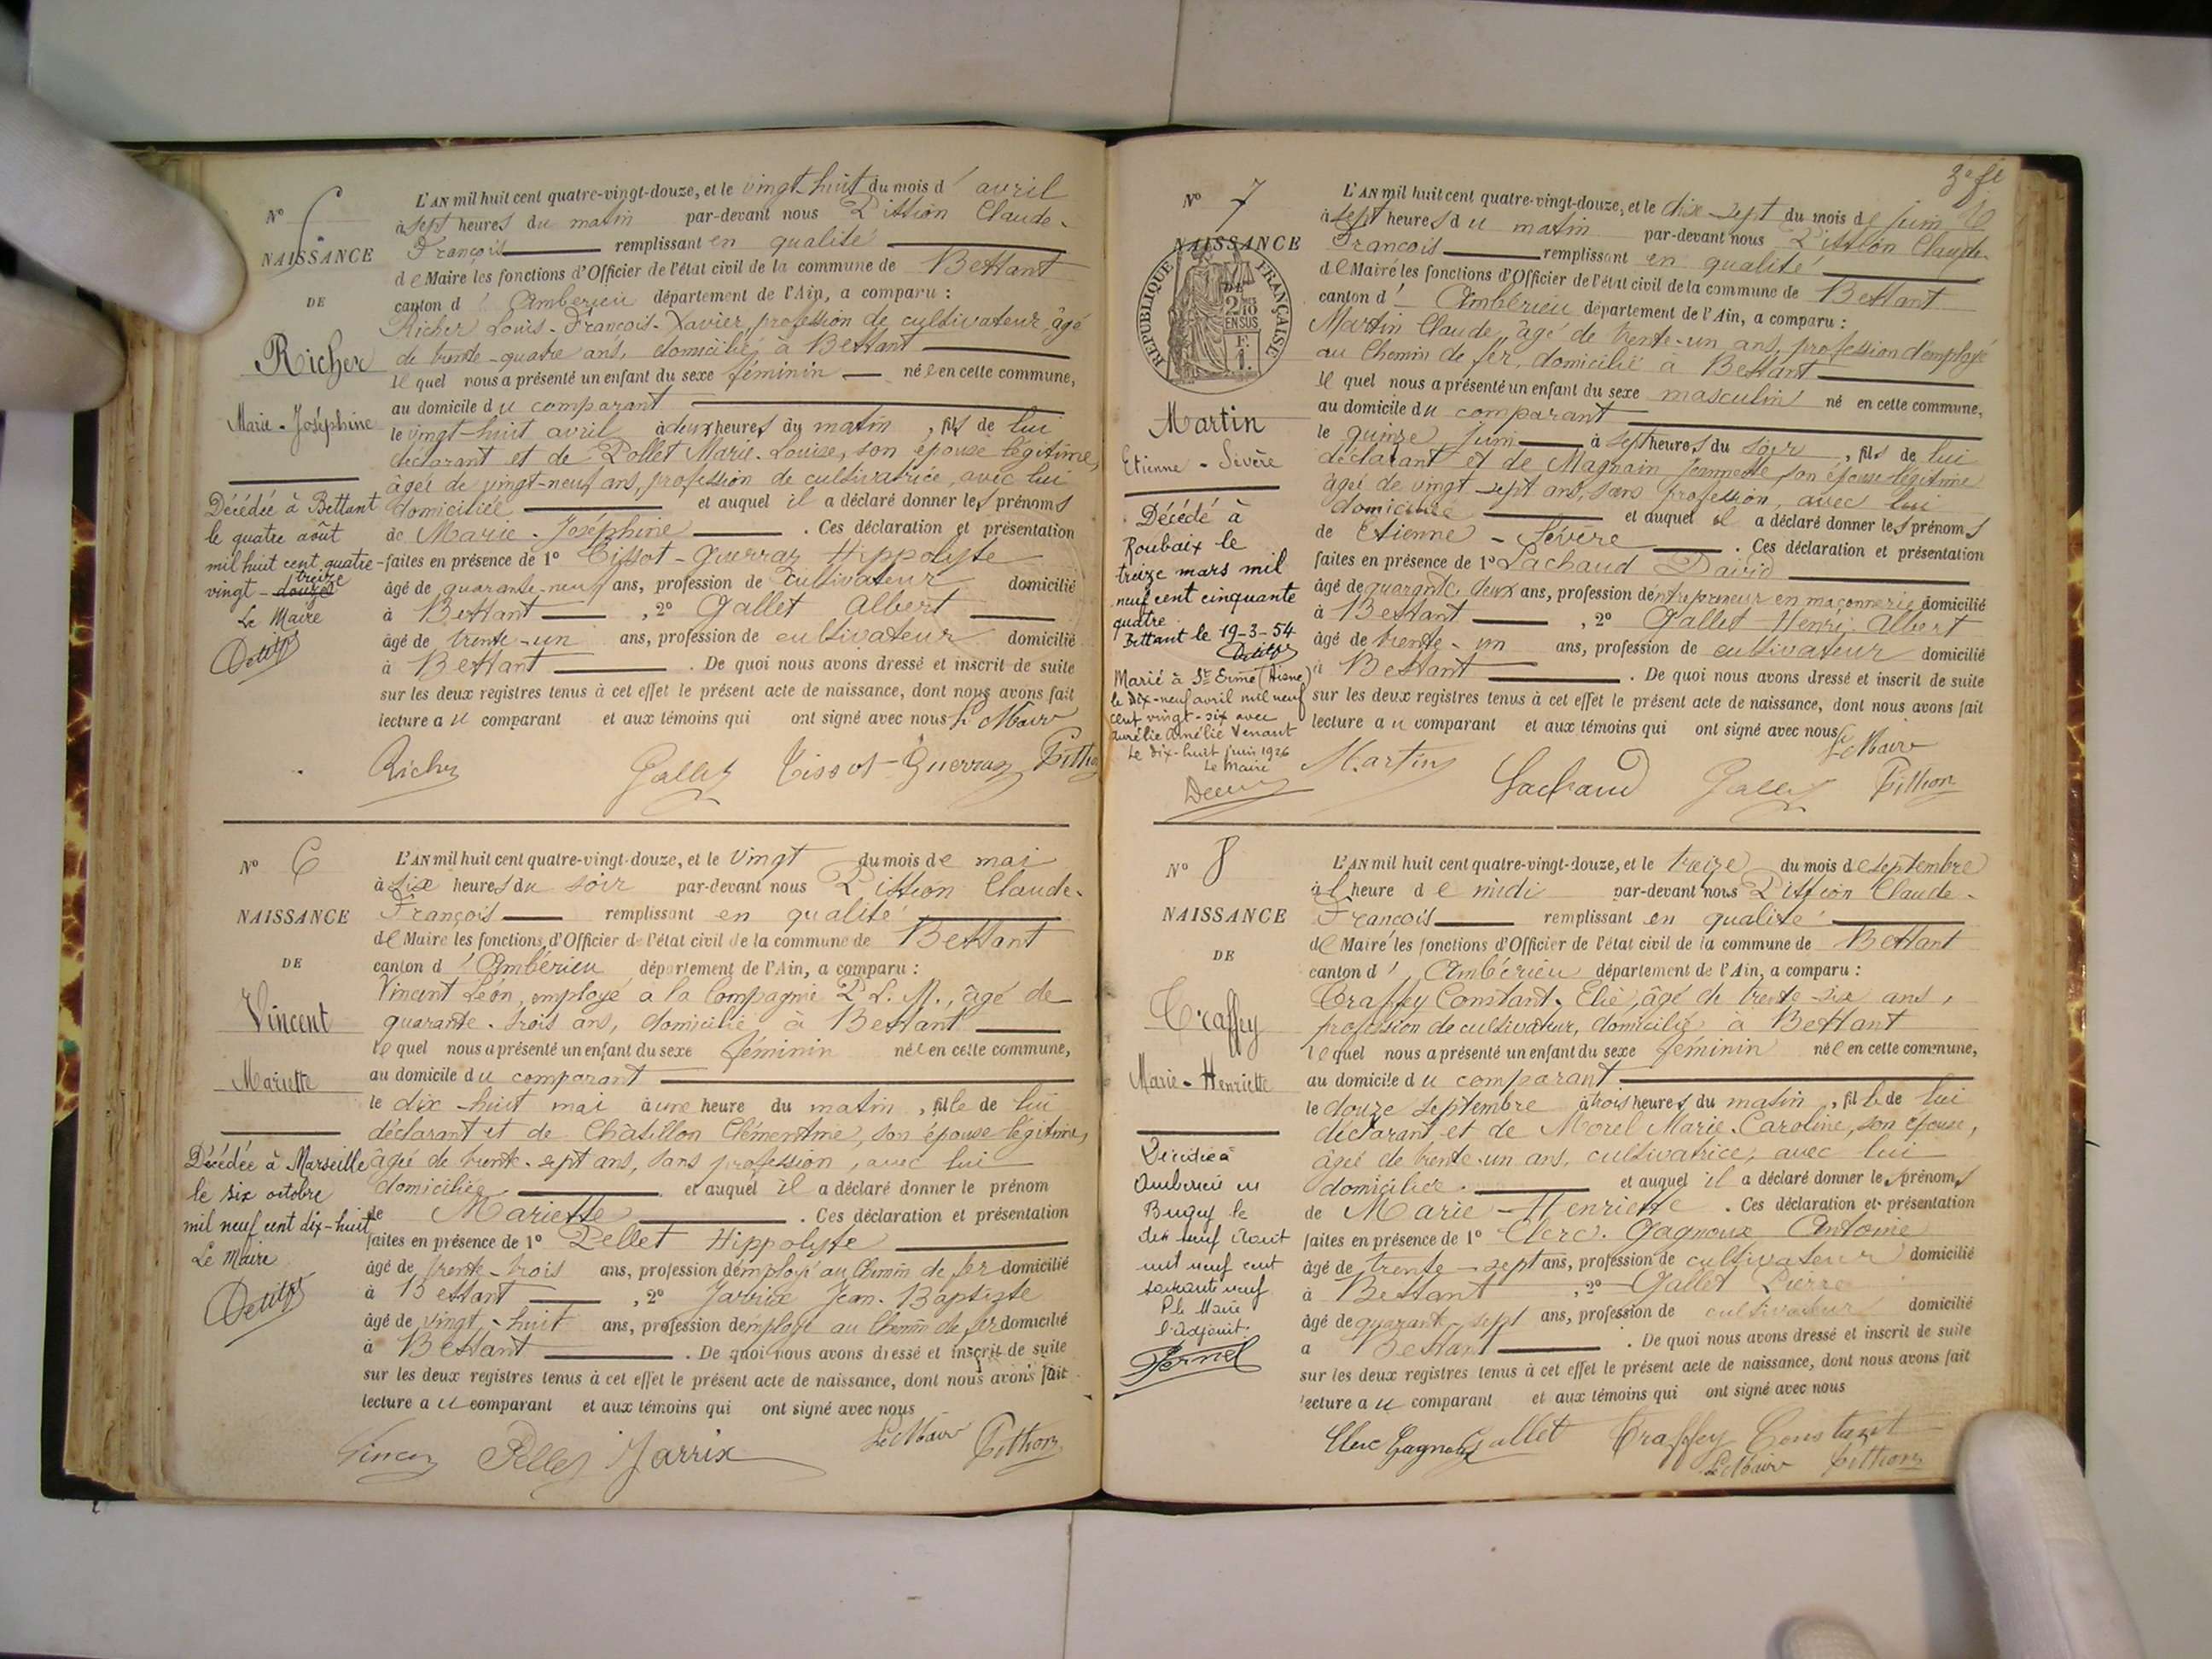 N° 5
NAISSANCE
DE
Richer
Marie-Joséphine
Décédée à Bettant
le quatre août
mil huit cent quatre-
vingt-douze treize
Le Maire
L'AN mil huit cent quatre-vingt-douze, et le vingt-huit du mois d'avril
à sept heures du matin par-devant nous Pittion Claude-
François remplissant en qualité
de Maire les fonctions d'Officier de l'état civil de la commune de Bettant
canton d'Ambérieu département de l'Ain, a comparu :
Richer Louis-François-Xavier, profession de cultivateur, âgé
de trente-quatre ans, domicilié à Bettant
lequel nous a présenté un enfant du sexe féminin née en cette commune,
au domicile du comparant
le vingt-huit avril à deux heures du matin, fils de lui
déclarant et de Pollet Marie-Louise, son épouse légitime,
âgée de vingt-neuf ans, profession de cultivatrice, avec lui
domiciliée et auquel il a déclaré donner les prénoms
de Marie-Joséphine. Ces déclaration et présentation
faites en présence de 1° Tissot-Guerraz Hippolyte
âgé de quarante-neuf ans, profession de cultivateur domicilié
à Bettant, 2° Gallet Albert
âgé de trente-un ans, profession de cultivateur domicilié
à Bettant. De quoi nous avons dressé et inscrit de suite
sur les deux registres tenus à cet effet le présent acte de naissance, dont nous avons fait
lecture au comparant et aux témoins qui ont signé avec nous Le Maire
Richer Gallet Tissot-Guerraz Pittion
N° 6
NAISSANCE
DE
Vincent
Mariette
Décédée à Marseille
le six octobre
mil neuf cent dix-huit
Le Maire
L'AN mil huit cent quatre-vingt-douze, et le vingt du mois de mai
à six heures du soir par-devant nous Pittion Claude-
François remplissant en qualité
de Maire les fonctions d'Officier de l'état civil de la commune de Bettant
canton d'Ambérieu département de l'Ain, a comparu :
Vincent Léon, employé à la Compagnie P. L. M., âgé de
quarante-trois ans, domicilié à Bettant
lequel nous a présenté un enfant du sexe féminin née en cette commune,
au domicile du comparant
le dix-huit mai à une heure du matin, fille de lui
déclarant et de Châtillon Clémentine, son épouse légitime,
âgée de trente-sept ans, sans profession, avec lui
domiciliée et auquel il a déclaré donner le prénom
de Mariette. Ces déclaration et présentation
faites en présence de 1° Pellet Hippolyte
âgé de trente-trois ans, profession d'employé au Chemin de fer domicilié
à Bettant, 2° Jarrix Jean-Baptiste
âgé de vingt-huit ans, profession d'employé au Chemin de fer domicilié
à Bettant. De quoi nous avons dressé et inscrit de suite
sur les deux registres tenus à cet effet le présent acte de naissance, dont nous avons fait
lecture au comparant et aux témoins qui ont signé avec nous
Le Maire
Vincent Pellet Jarrix Pittion
N° 7
NAISSANCE
RÉPUBLIQUE FRANÇAISE
DE
2/10
EN SUS
F.
1.
Martin
Etienne-Sévère
Décédé à
Roubaix le
treize mars mil
neuf cent cinquante
quatre
Bettant le 19-3-54
Marié à St Erme (Aisne)
le dix-neuf avril mil neuf
cent vingt-six avec
Aurélie Amélie Venant
Le dix-huit juin 1926
Le Maire
L'AN mil huit cent quatre-vingt-douze, et le dix-sept du mois de juin
à sept heures du matin par-devant nous Pittion Claude-
François remplissant en qualité
de Maire les fonctions d'Officier de l'état civil de la commune de Bettant
canton d'Ambérieu département de l'Ain, a comparu :
Martin Claude, âgé de trente-un ans, profession d'employé
au Chemin de fer, domicilié à Bettant
lequel nous a présenté un enfant du sexe masculin né en cette commune,
au domicile du comparant
le quinze juin à sept heures du soir, fils de lui
déclarant et de Magnain Jeannette son épouse légitime
âgée de vingt-sept ans, sans profession, avec lui
domiciliée et auquel il a déclaré donner les prénoms
de Etienne-Sévère. Ces déclaration et présentation
faites en présence de 1° Lachaud David
âgé de quarante-deux ans, profession d'entrepreneur en maçonnerie domicilié
à Bettant, 2° Gallet Henri Albert
âgé de trente-un ans, profession de cultivateur domicilié
à Bettant. De quoi nous avons dressé et inscrit de suite
sur les deux registres tenus à cet effet le présent acte de naissance, dont nous avons fait
lecture au comparant et aux témoins qui ont signé avec nous
Le Maire
Martin Lachaud Gallet Pittion
N° 8
NAISSANCE
DE
Traffey
Marie-Henriette
Décédée à
Ambérieu en
Bugey le
dix neuf Août
mil neuf cent
soixante neuf
P. le Maire
l'adjoint.
L'AN mil huit cent quatre-vingt-douze, et le treize du mois de septembre
à l'heure de midi par-devant nous Pittion Claude-
François remplissant en qualité
de Maire les fonctions d'Officier de l'état civil de la commune de Bettant
canton d'Ambérieu département de l'Ain, a comparu :
Traffey Constant-Elie, âgé de trente-six ans,
profession de cultivateur, domicilié à Bettant
lequel nous a présenté un enfant du sexe féminin née en cette commune,
au domicile du comparant
le douze septembre à trois heures du matin, fille de lui
déclarant et de Morel Marie-Caroline, son épouse,
âgée de trente-un ans, cultivatrice, avec lui
domiciliée. et auquel il a déclaré donner les prénoms
de Marie-Henriette. Ces déclaration et présentation
faites en présence de 1° Clerc-Gagnoux Antoine
âgé de trente-sept ans, profession de cultivateur domicilié
à Bettant, 2° Gallet Pierre
âgé de quarante-sept ans, profession de cultivateur domicilié
à Bettant. De quoi nous avons dressé et inscrit de suite
sur les deux registres tenus à cet effet le présent acte de naissance, dont nous avons fait
lecture au comparant et aux témoins qui ont signé avec nous
Clerc Gagnoux Gallet Traffey Constant
Le Maire Pittion